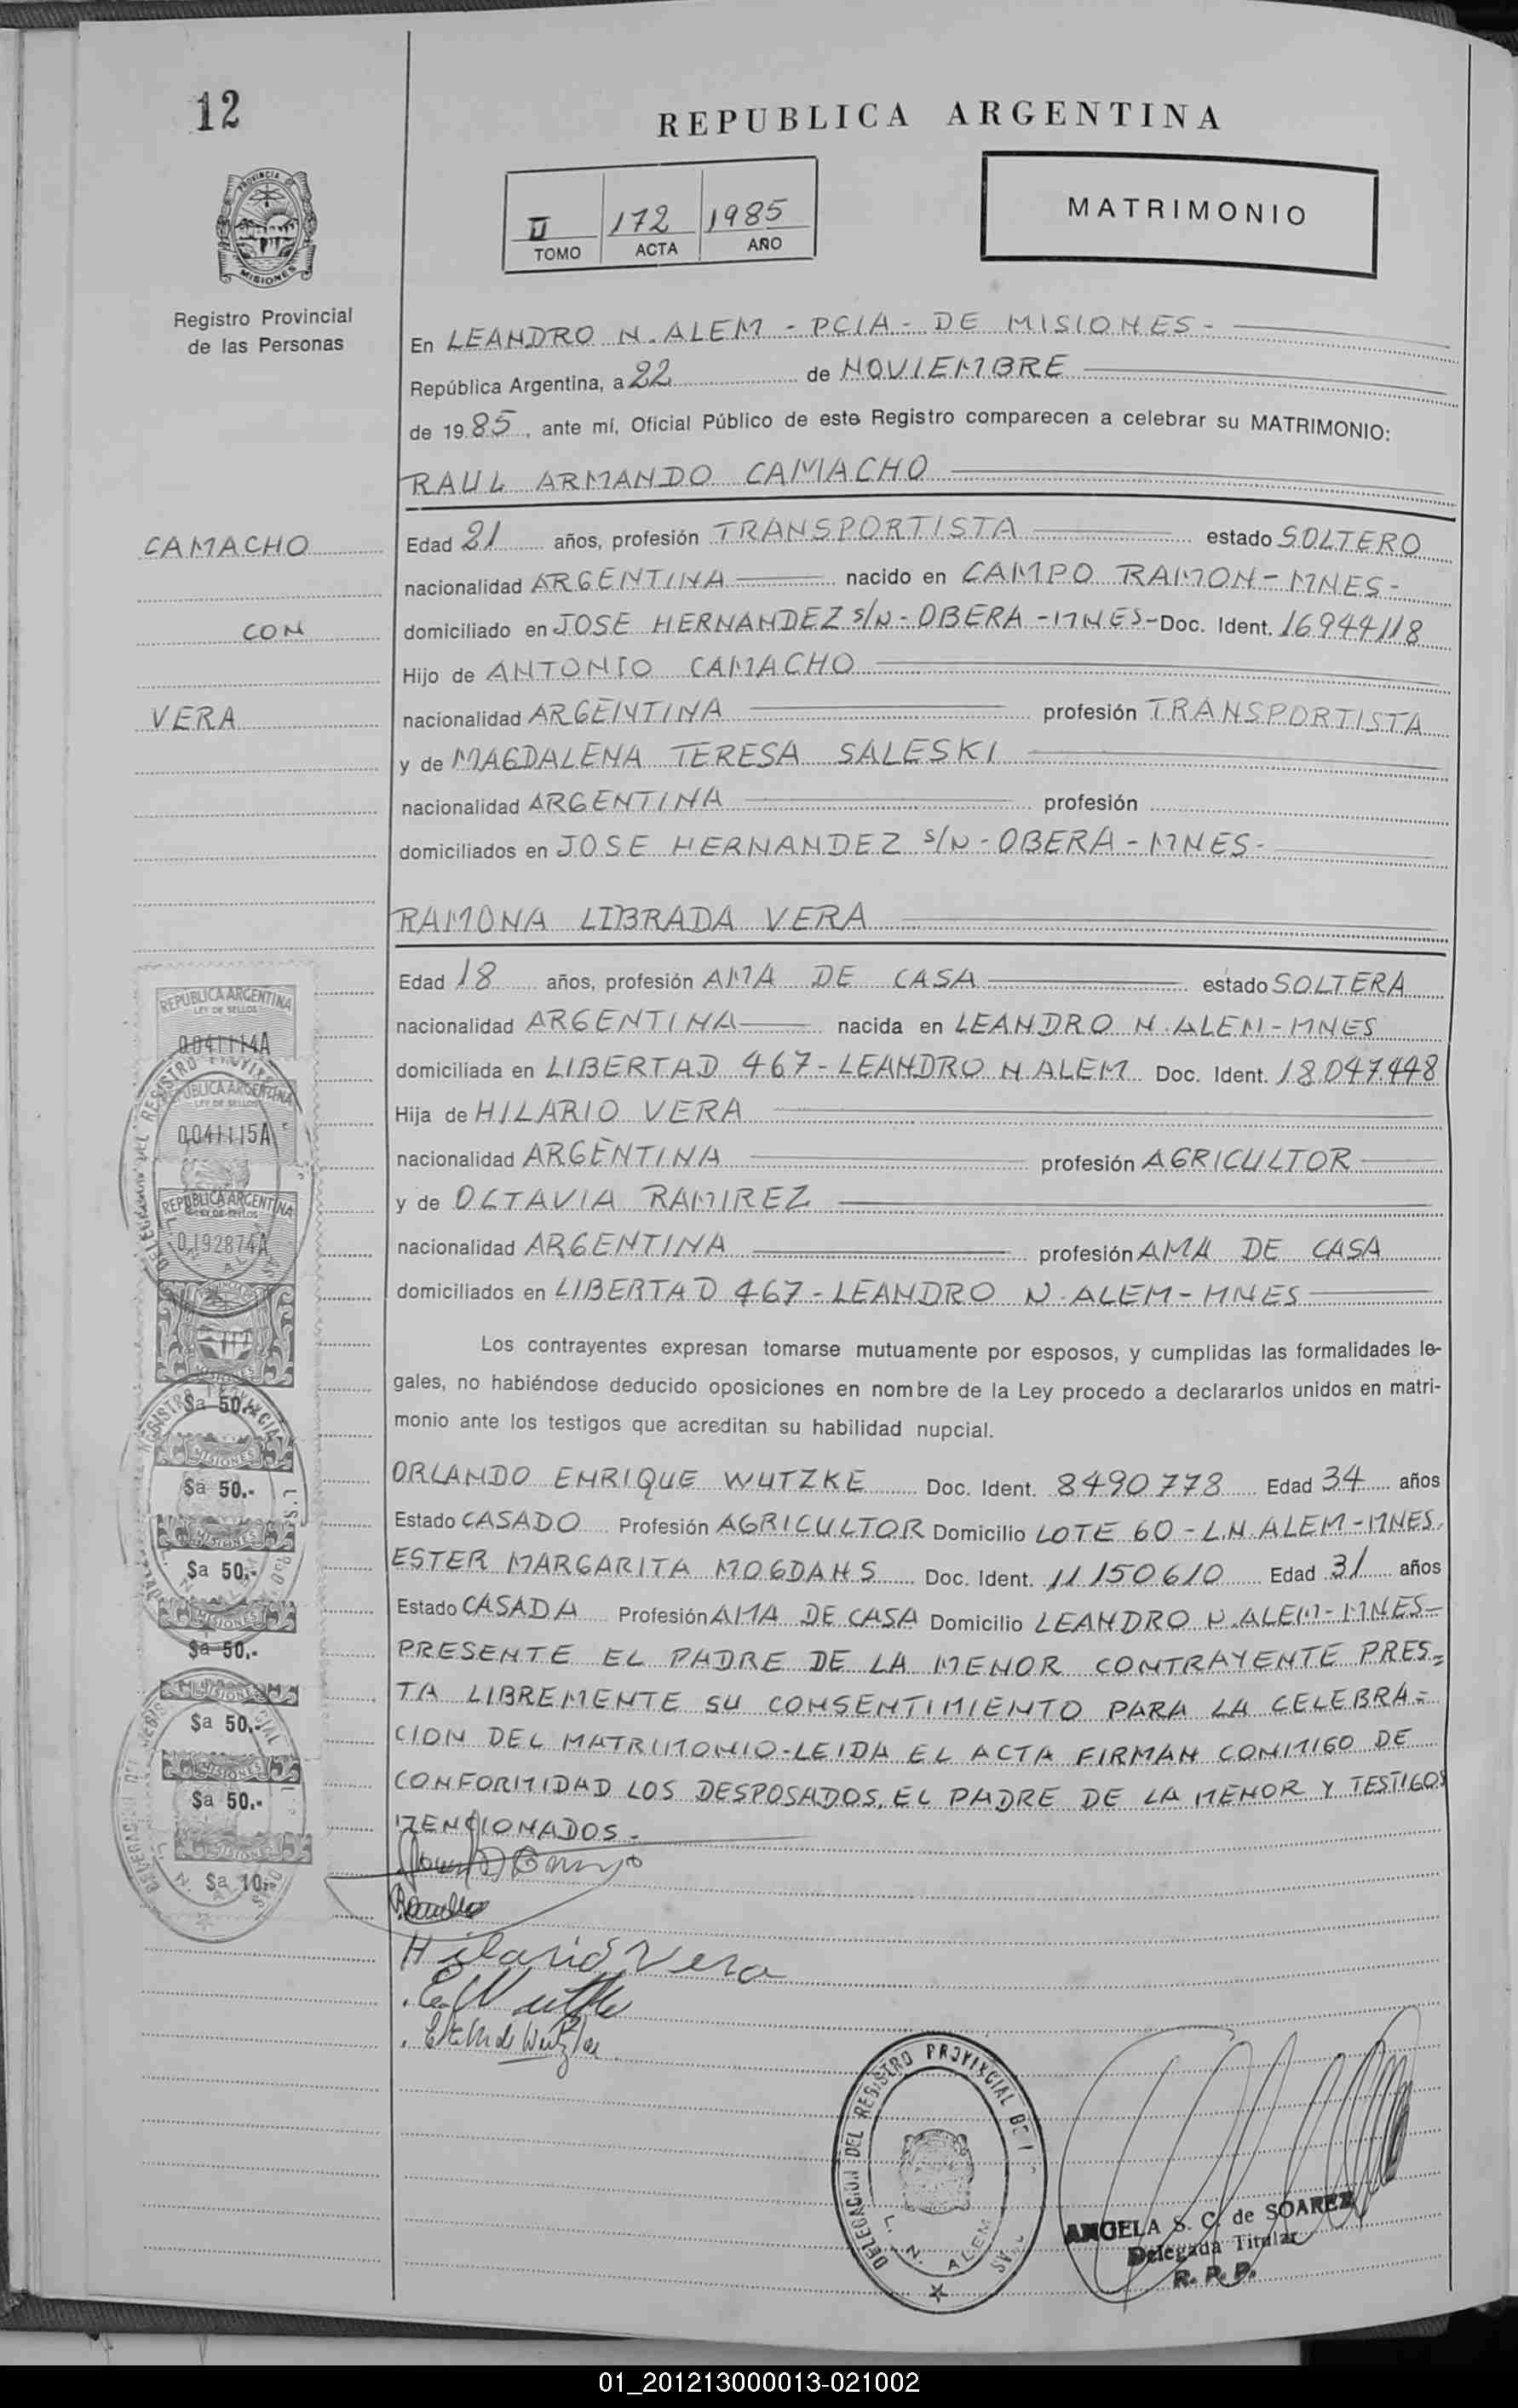 12
REPUBLICA ARGENTINA
PROVINCIA DE
MISIONES
Registro Provincial
de las Personas
II 172 1985
TOMO ACTA AÑO
MATRIMONIO
En LEANDRO N. ALEM - PCIA - DE MISIONES -
República Argentina, a 22 de NOVIEMBRE
de 1985, ante mí, Oficial Público de este Registro comparecen a celebrar su MATRIMONIO:
RAUL ARMANDO CAMACHO
CAMACHO
CON
VERA
Edad 21 años, profesión TRANSPORTISTA estado SOLTERO
nacionalidad ARGENTINA nacido en CAMPO RAMON - MNES -
domiciliado en JOSE HERNANDEZ s/N - OBERA - MNES - Doc. Ident. 16944118
Hijo de ANTONIO CAMACHO
nacionalidad ARGENTINA profesión TRANSPORTISTA
y de MAGDALENA TERESA SALESKI
nacionalidad ARGENTINA profesión
domiciliados en JOSE HERNANDEZ s/N - OBERA - MNES -
RAMONA LIBRADA VERA
Edad 18 años, profesión AMA DE CASA estado SOLTERA
nacionalidad ARGENTINA nacida en LEANDRO N. ALEM - MNES
domiciliada en LIBERTAD 467 - LEANDRO N ALEM Doc. Ident. 18.047.448
Hija de HILARIO VERA
nacionalidad ARGENTINA profesión AGRICULTOR
y de OCTAVIA RAMIREZ
nacionalidad ARGENTINA profesión AMA DE CASA
domiciliados en LIBERTAD 467 - LEANDRO N. ALEM - MNES
Los contrayentes expresan tomarse mutuamente por esposos, y cumplidas las formalidades le-
gales, no habiéndose deducido oposiciones en nombre de la Ley procedo a declararlos unidos en matri-
monio ante los testigos que acreditan su habilidad nupcial.
ORLANDO ENRIQUE WUTZKE Doc. Ident. 8490778 Edad 34 años
Estado CASADO Profesión AGRICULTOR Domicilio LOTE 60 - L.N. ALEM - MNES.
ESTER MARGARITA MOGDANS Doc. Ident. 11150610 Edad 31 años
Estado CASADA Profesión AMA DE CASA Domicilio LEANDRO N. ALEM - MNES -
PRESENTE EL PADRE DE LA MENOR CONTRAYENTE PRES=
TA LIBREMENTE SU CONSENTIMIENTO PARA LA CELEBRA=
CION DEL MATRIMONIO - LEIDA EL ACTA FIRMAN CONMIGO DE
CONFORMIDAD LOS DESPOSADOS, EL PADRE DE LA MENOR Y TESTIGOS
MENCIONADOS -
Hilario Vera
REPUBLICA ARGENTINA
LEY DE SELLOS
0041114A
REPUBLICA ARGENTINA
LEY DE SELLOS
0041115A
REPUBLICA ARGENTINA
LEY DE SELLOS
0192874A
MISIONES
$a 50.-
MISIONES
$a 50.-
MISIONES
$a 50.-
MISIONES
$a 50.-
MISIONES
$a 50.-
MISIONES
$a 50.-
MISIONES
$a 10.-
DELEGACION DEL REGISTRO PROVINCIAL DE
L. N. ALEM
ANGELA S. C. de SOAREZ
Delegada Titular
R. P. P.
01_201213000013-021002